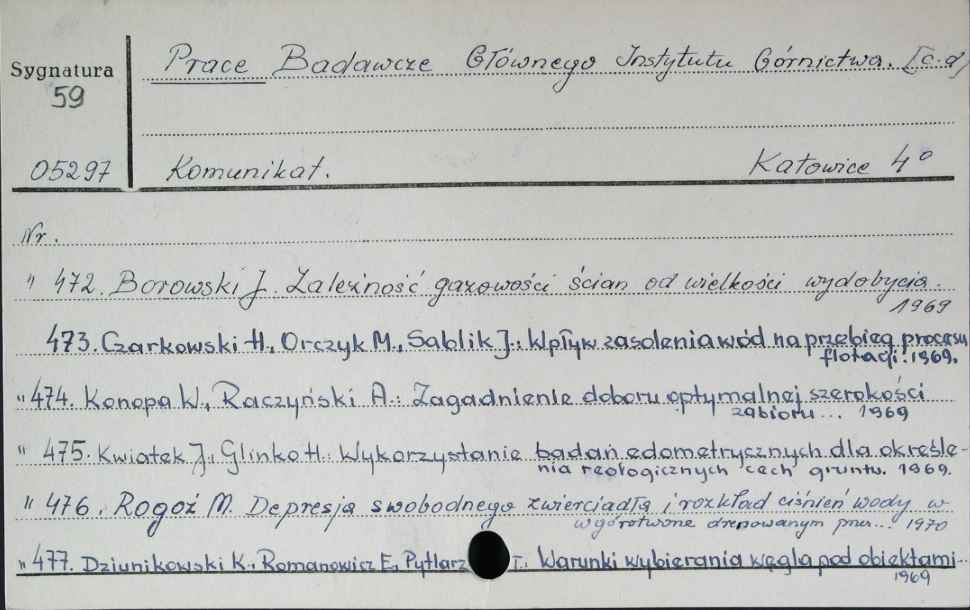 Prace Badawcze Głównego Instytutu Górnictwa. [c.d]
Sygnatura
59
05297 Komunikat. Katowice 4°
Nr.
" 472. Borowski J. Zależność gazowości ścian od wielkości wydobycia.
1969
473. Czarkowski H., Orczyk M., Sablik J.: Wpływ zasolenia wód na przebieg procesu
flotacji. 1969.
" 474. Konopa W., Raczyński A.: Zagadnienie doboru optymalnej szerokości
zabioru... 1969
" 475. Kwiatek J., Glinko H.: Wykorzystanie badań edometrycznych dla określe-
nia reologicznych cech gruntu. 1969.
" 476. Rogoż M. Depresja swobodnego zwierciadła i rozkład ciśnień wody w
wygórotwone drenowanym przez... 1970
" 477. Dziunikowski K., Romanowicz E., Pytlarz T.: Warunki wybierania węgla pod obiektami...
1969